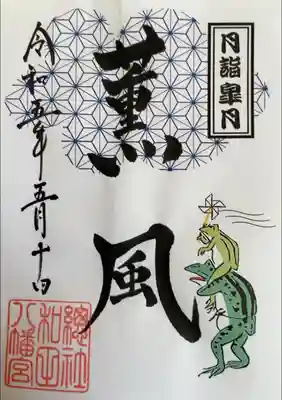 月詣 皐月
薫風
令和五年五月十日
總社
和田
八幡宮